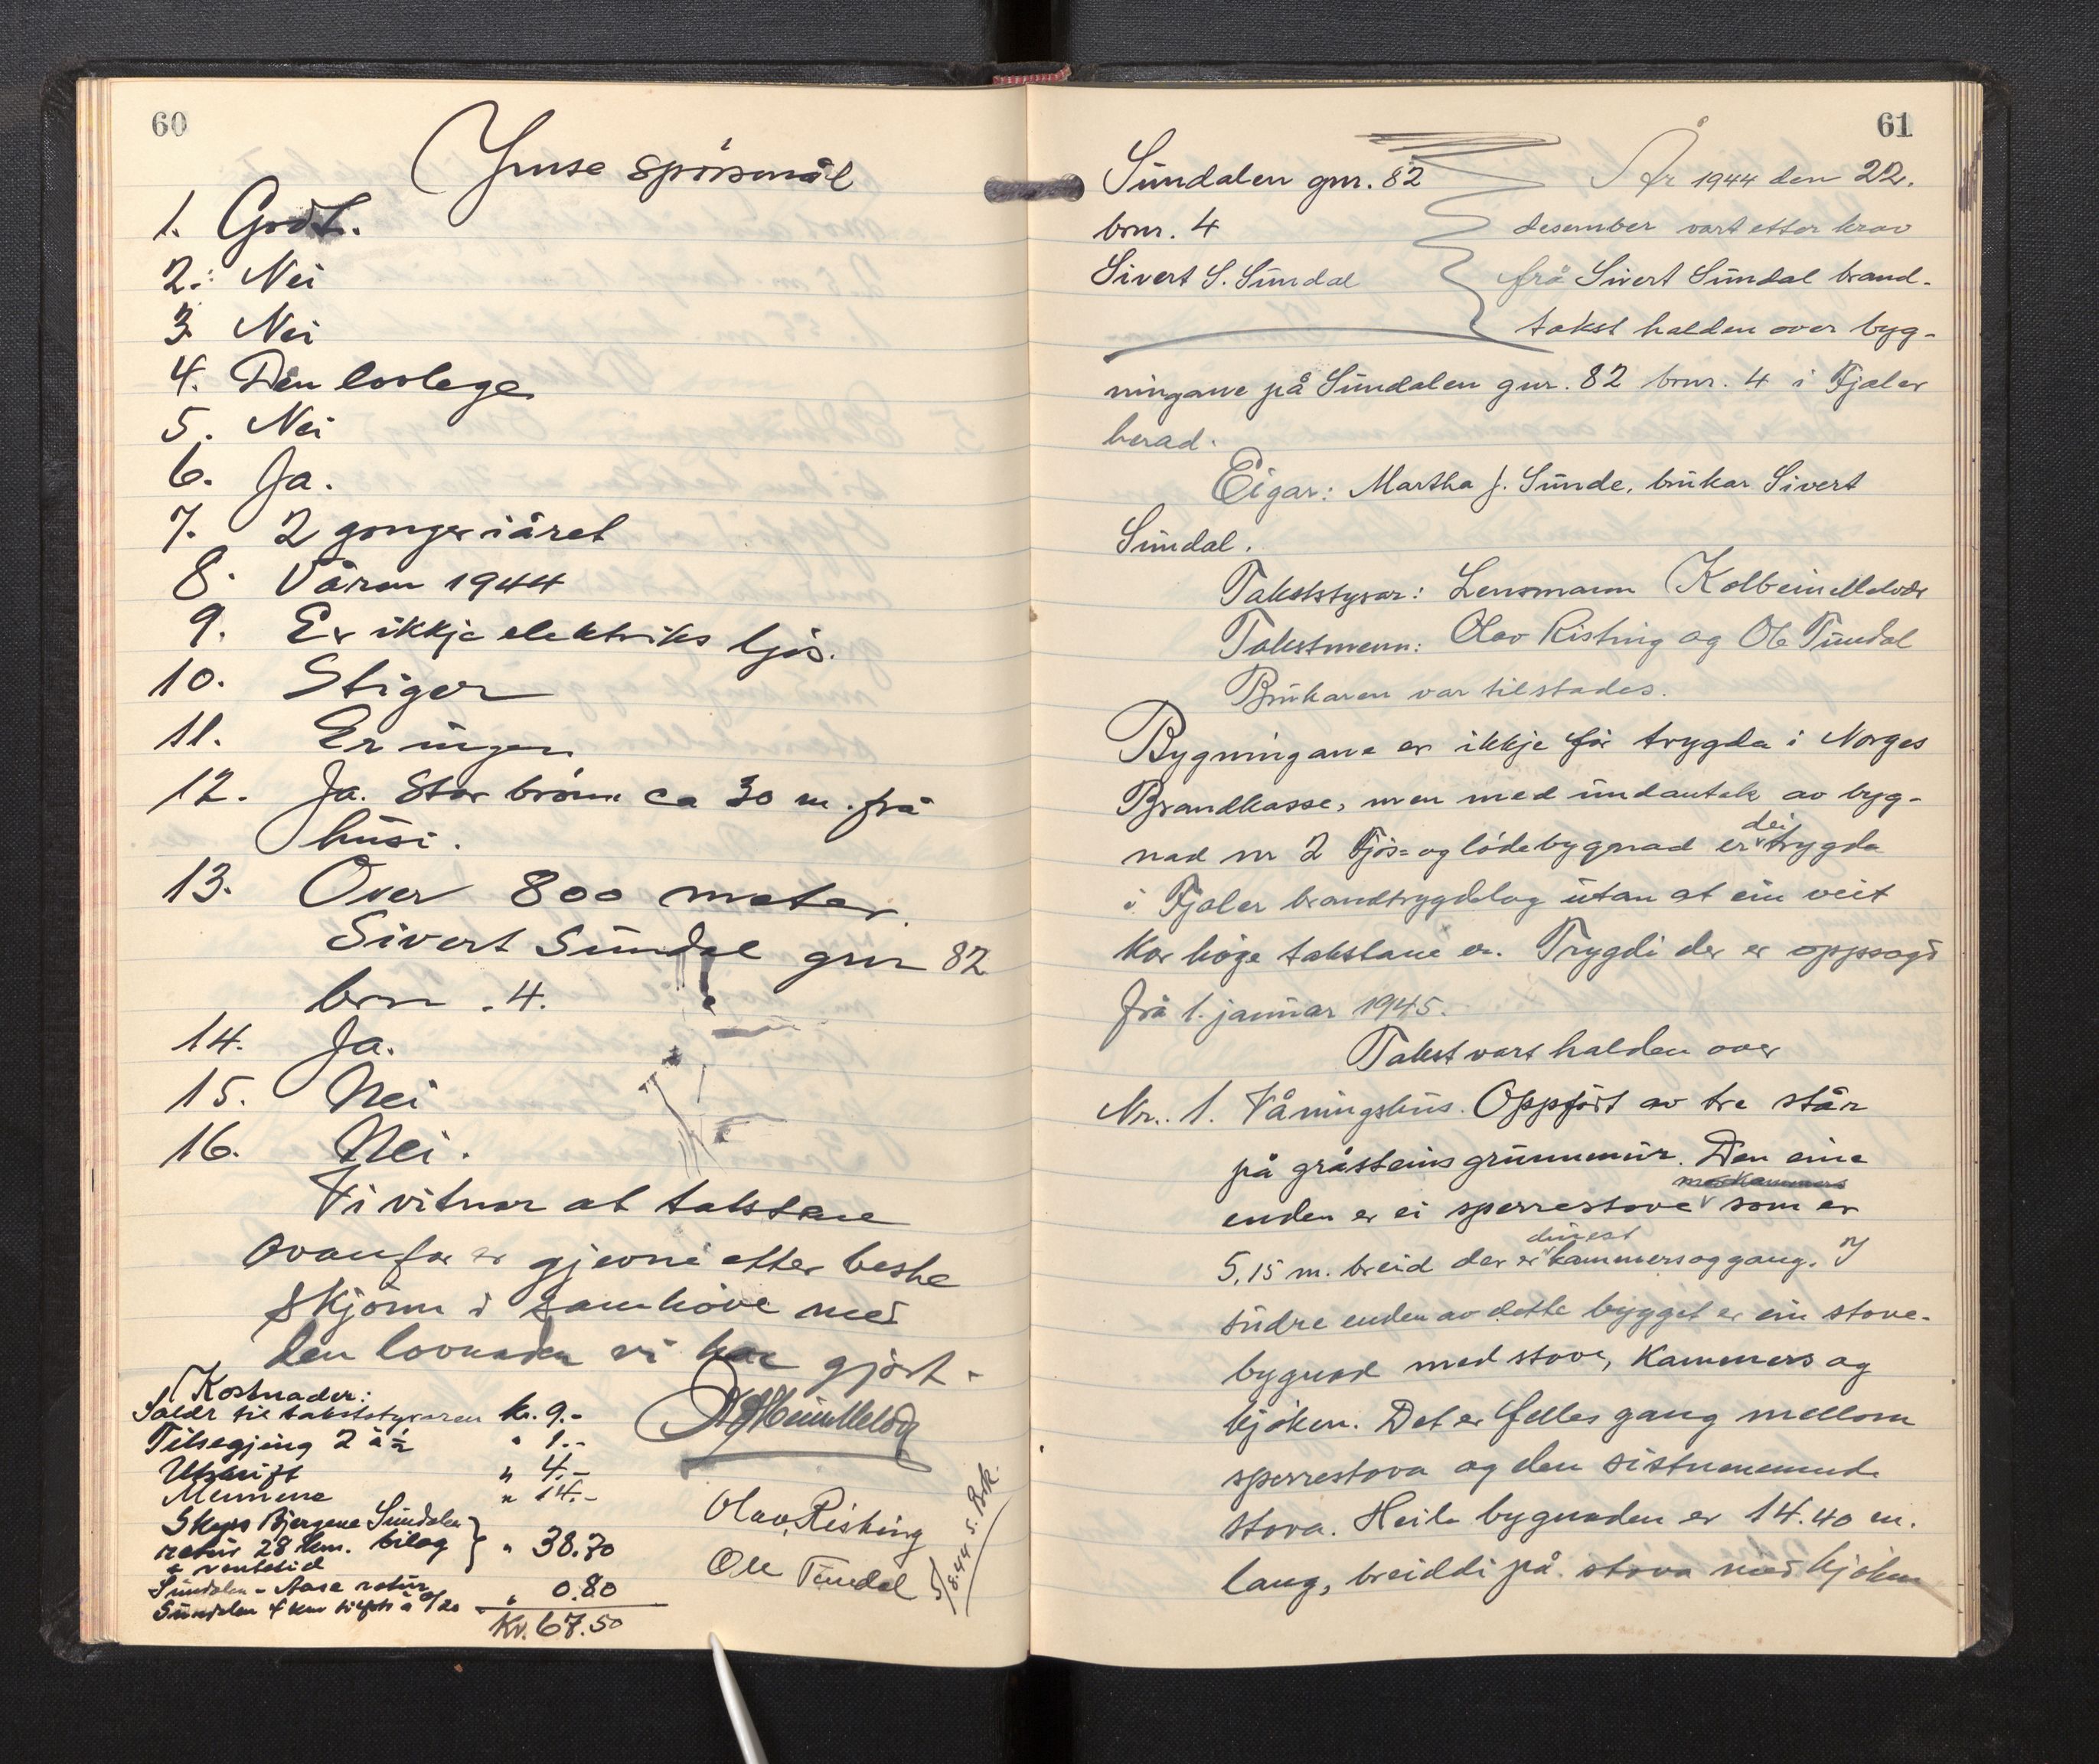 60
Ymse spörsmål
1. Godt.
2. Nei
3. Nei
4. Den lovlege
5. Nei
6. Ja.
7. 2 gonger i året
8. Våren 1944
9. Er ikkje elektriks ljos.
10. Stiger
11. Er ingen
12. Ja. Stor brönn ca 30 m. frå
husi.
13. Over 800 meter.
Sivert Sündal gnr 82
brn. 4.
14. Ja.
15. Nei
16. Nei.
Vi vitnar at takstane
ovanfor er gjevne etter beste
skjönn i samhöve med
den lovnaden vi har gjort.
Kostnader:
Salær til takststyraren kr. 9.-
Tilsegjing 2 à ½ " 1.-
Utskrift " 4.-
Mennene " 14.-
Skyss Bjergene Sündalen
retur 28 km. bilag } " 38.70
+ ventetid
Sündalen - Aase retur
Sündalen 4 km à 0/20 " 0.80
Kr. 67.50
Olav Risting
Ole Tündal
61
Sündalen gnr. 82
brnr. 4
Sivert S. Sündal
År 1944 den 22.
desember vart etter krav
frå Sivert Sündal brand-
takst halden over byg-
ningane på Sündalen gnr. 82 brnr. 4 i Fjaler
herad.
Eigar: Martha J. Sünde, brükar Sivert
Sündal.
Takststyrar: Lensmann Kolbein Melvær
Takstmenn: Olav Risting og Ole Tündal
Brükaren var tilstades.
Bygningane er ikkje för trygda i Norges
Brandkasse, men med ündantak av byg-
nad nr 2 Fjös- og lödebygnad er dei trygda
i Fjaler brandtrygdelag ütan at ein veit
kor höge takstane er. Trygdi der er oppsagd
frå 1. januar 1945.
Takst vart halden over
Nr. 1. Våningshüs. Oppfört av tre står
på gråsteins grünnmür. Den eine
enden er ei sperrestove som er
5,15 m. breid der er dinest kammers og gang. I
südre enden av dette bygget er ein stove-
bygnad med stove, Kammers og
kjöken. Det er felles gang mellom
sperrestova og den sistnemnde
stova. Heile bygnaden er 14.40 m.
lang, breiddi på stova med kjöken